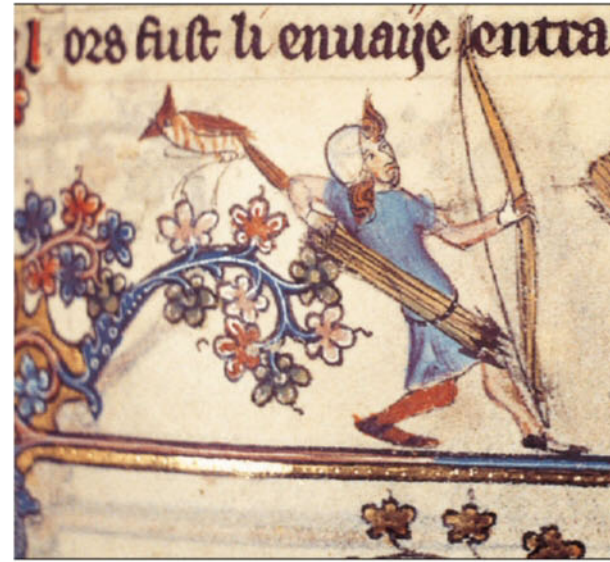 ors fust li enuaije entra